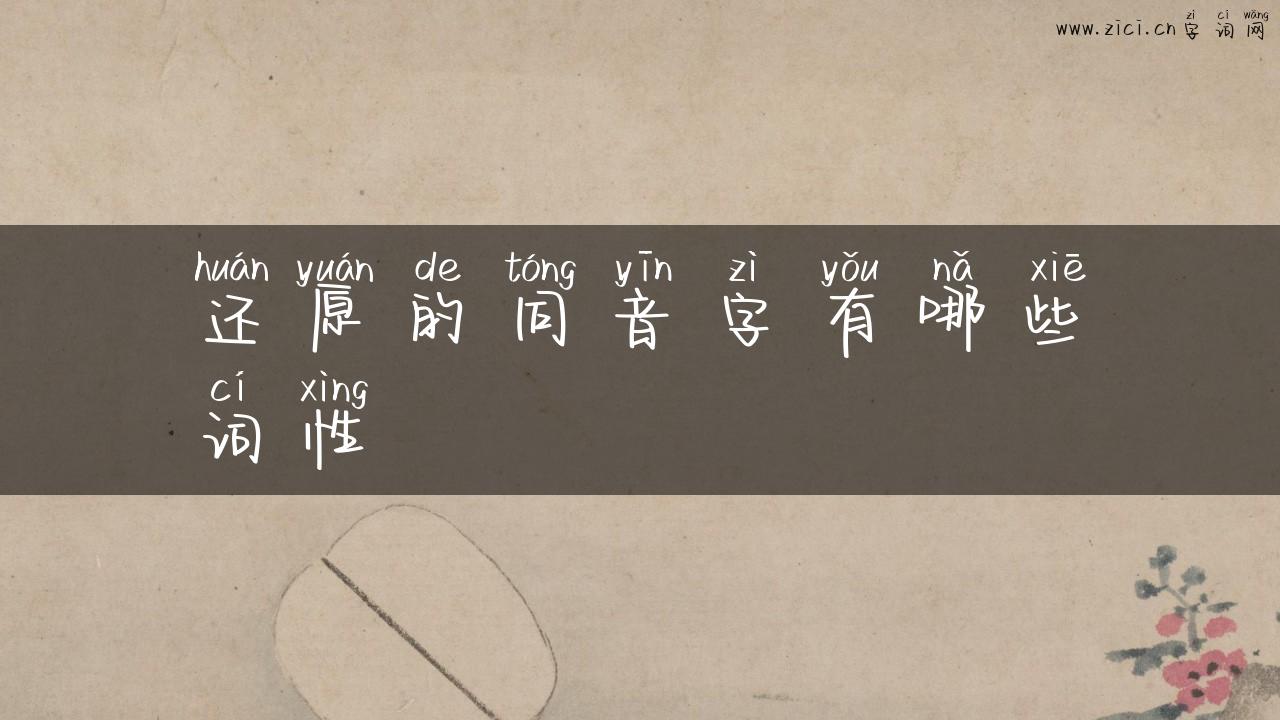 zì cí wǎng
www.zici.cn字词网
huán yuán de tóng yīn zì yǒu nǎ xiē
还原的同音字有哪些
cí xìng
词性